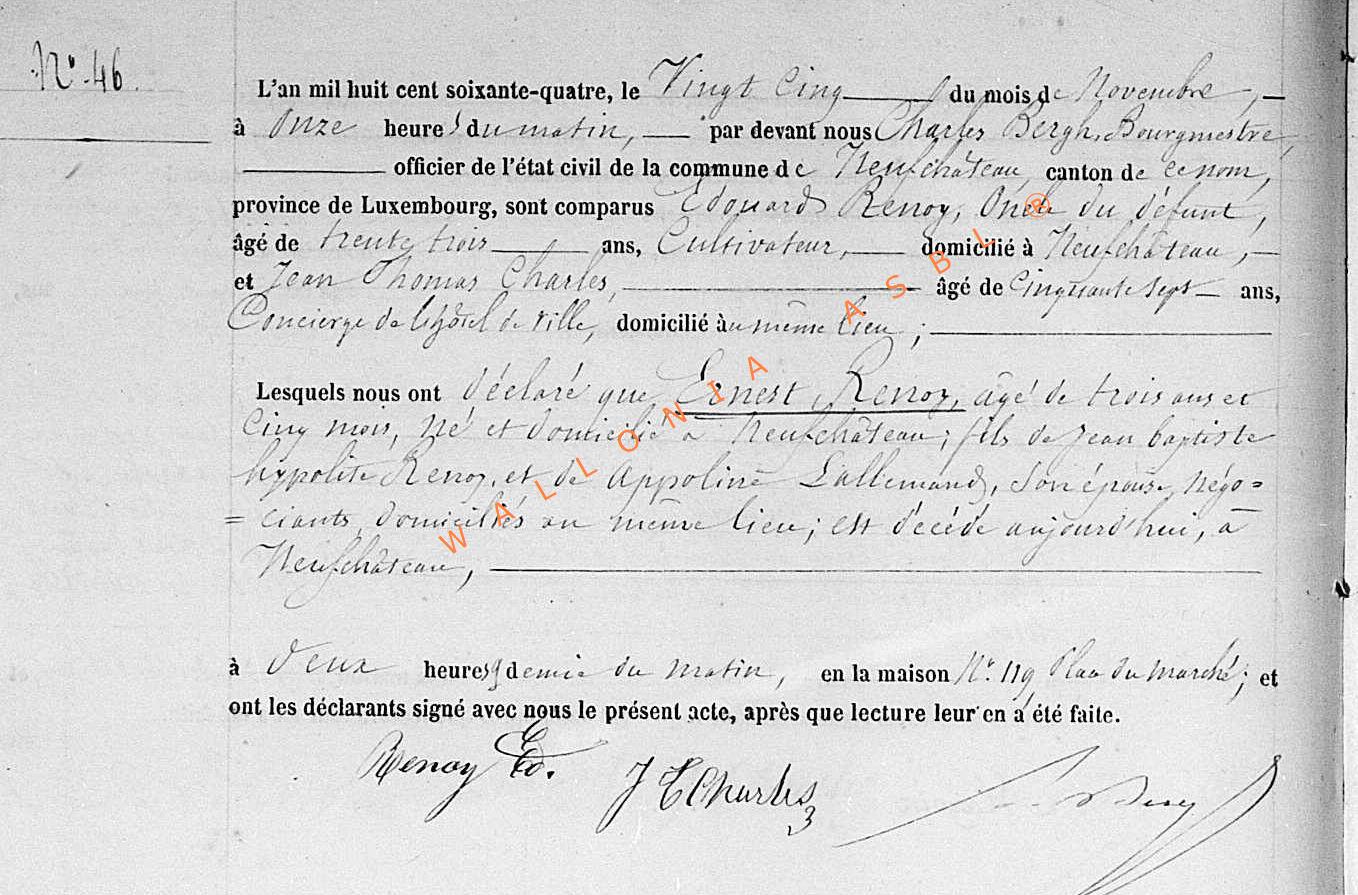 N° 46.
L'an mil huit cent soixante-quatre, le Vingt Cinq du mois de Novembre,
à Onze heures du matin, par devant nous Charles Bergh, Bourgmestre,
officier de l'état civil de la commune de Neufchâteau, canton de ce nom,
province de Luxembourg, sont comparus Edouard Renoy, Oncle du défunt,
âgé de trente trois ans, Cultivateur, domicilié à Neufchâteau,
et Jean Thomas Charles, âgé de Cinquante Sept ans,
Concierge de l'hôtel de ville, domicilié au même lieu;
Lesquels nous ont déclaré que Ernest Renoy, âgé de trois ans et
Cinq mois, né et domicilié à Neufchâteau; fils de Jean baptiste
hypolite Renoy, et de Appoline Lallemand, Son épouse, Négo=
=ciants, domiciliés au même lieu; est décédé aujourd'hui, à
Neufchâteau,
à Deux heures & demie du matin, en la maison N° 119, Place du marché; et
ont les déclarants signé avec nous le présent acte, après que lecture leur en a été faite.
Renoy Ed. J T Charles
WALLONIA ASBL ®